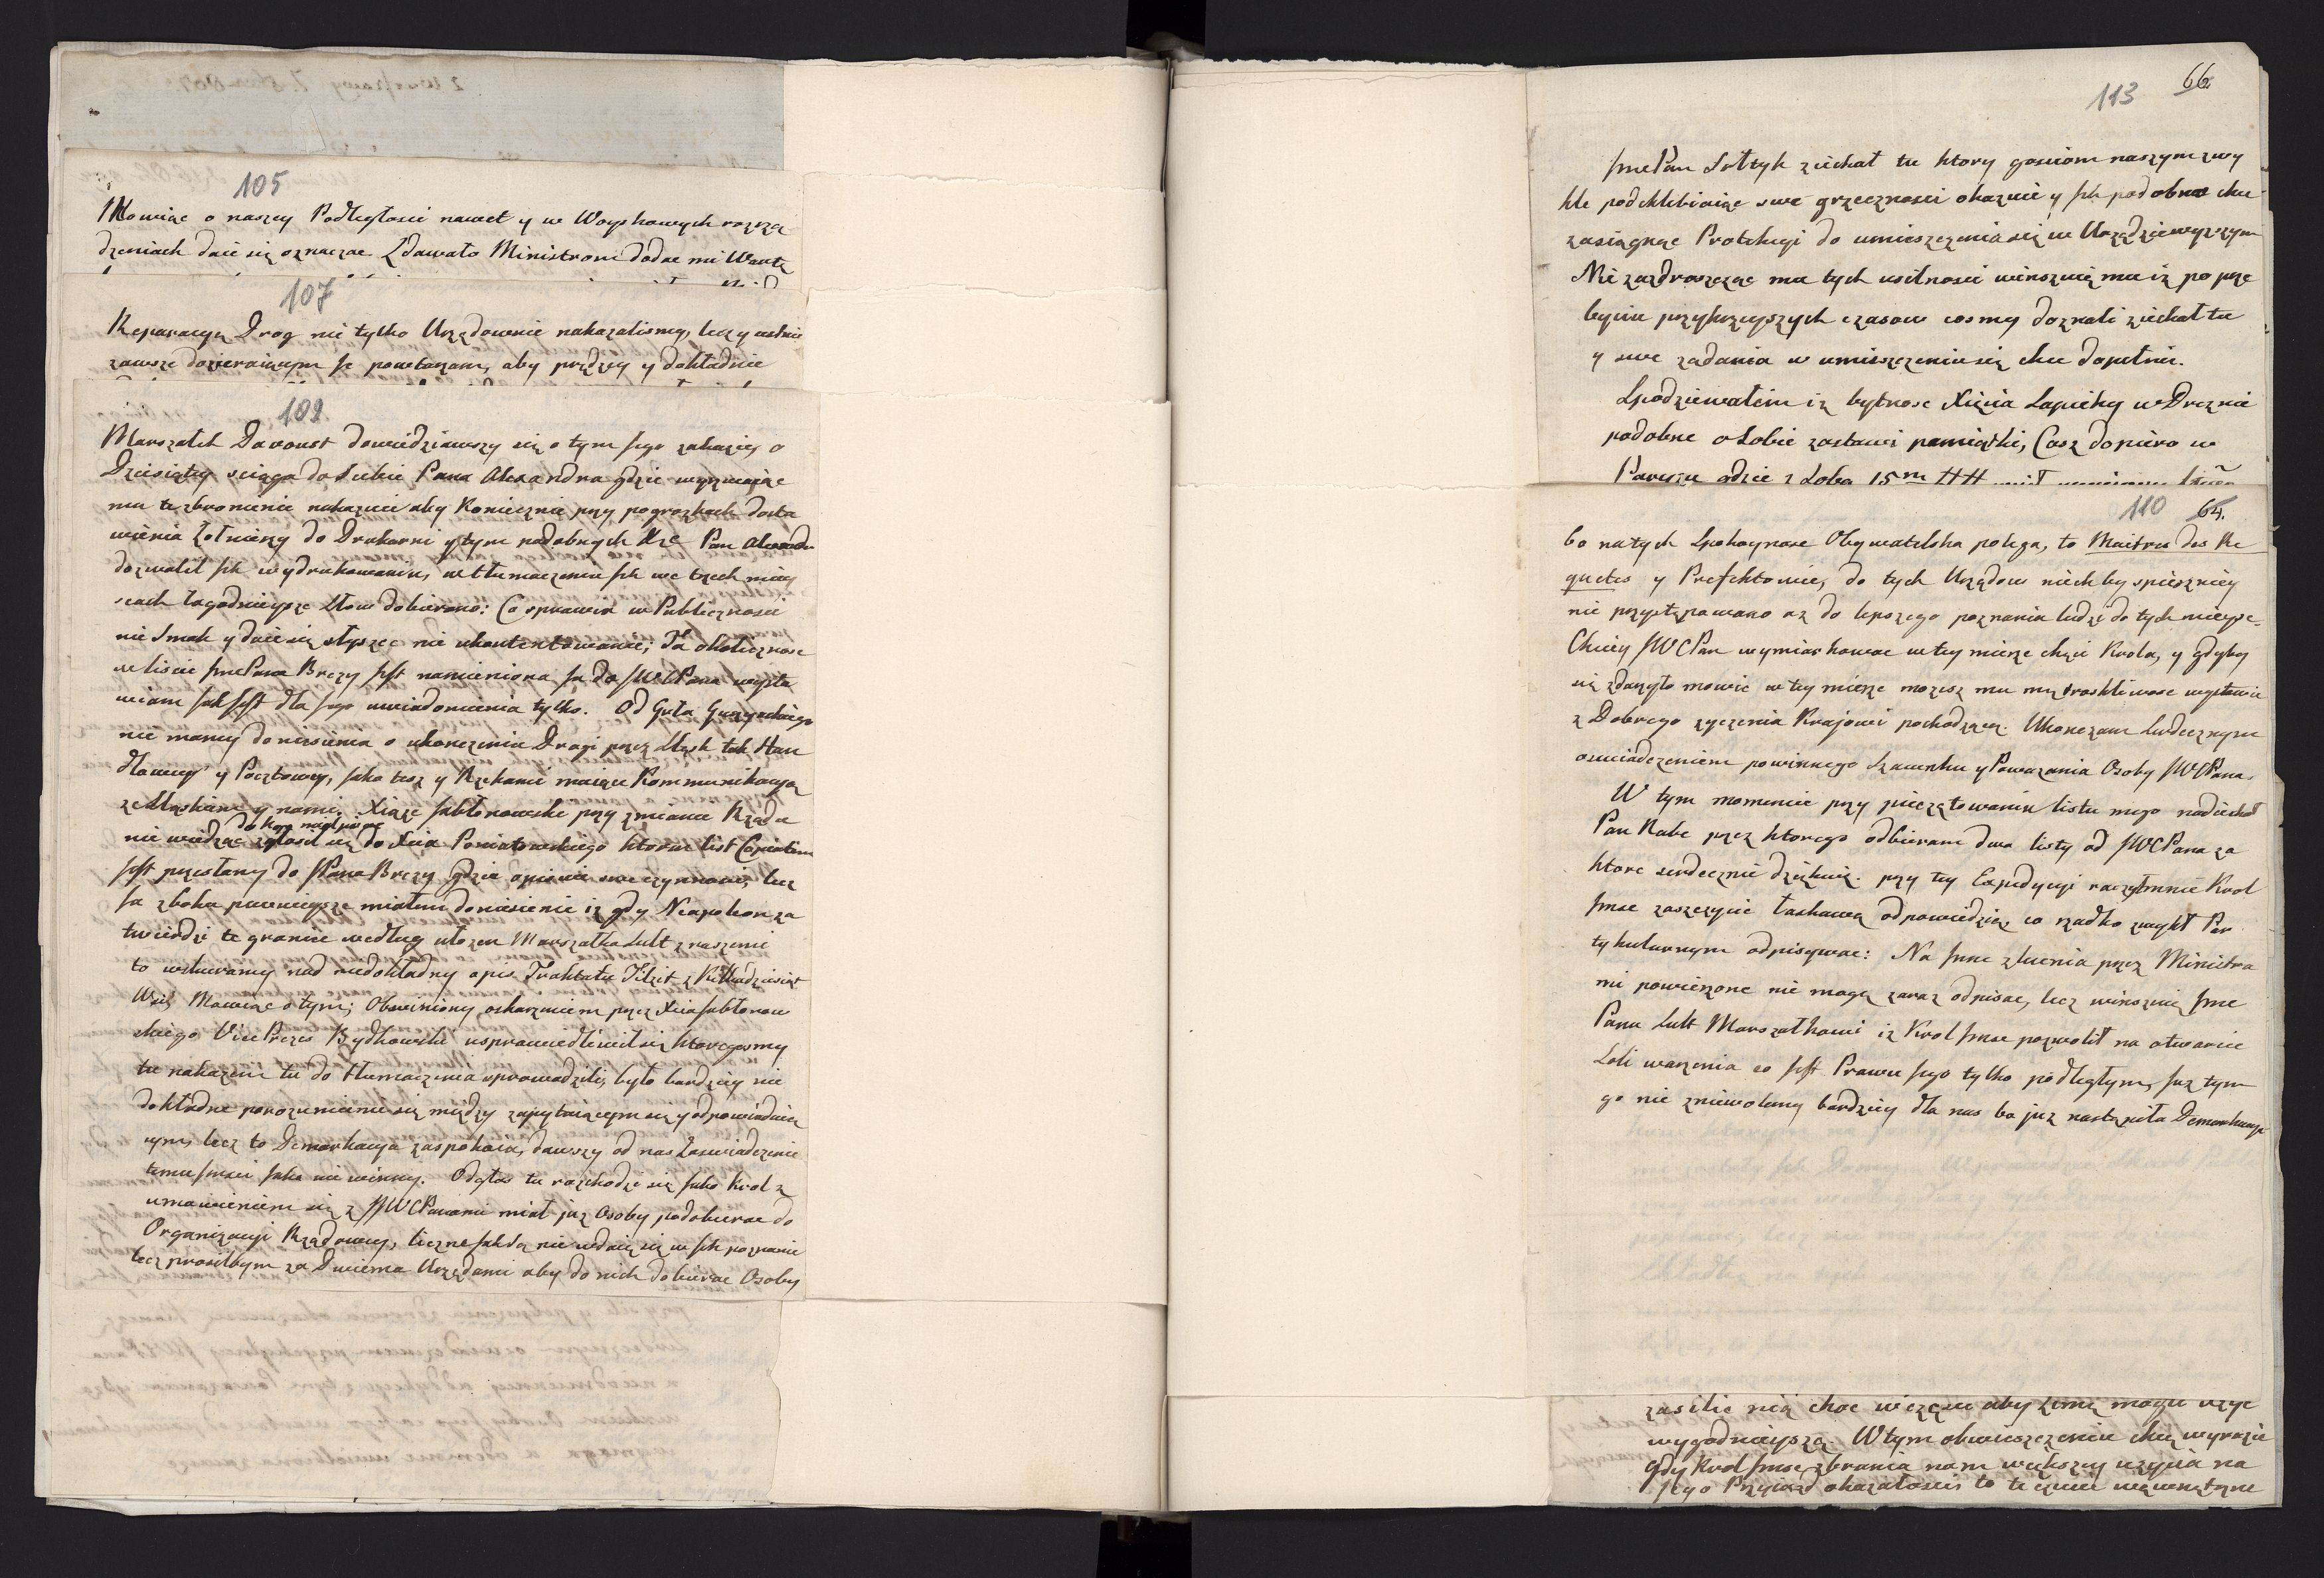 105
Mowiąc o naszey Podległosci nawet y w Woyskowych rozrzą
dzeniach daie się oznaczac Zdawało Ministrom dodac mi Wartę
107
Reparacyą Drog nie tylko Urzędownie nakazalismy, lecz y ustnie
zawsze dozieraiącym Je powtarzam, aby prędzey y dokładnie
109
Marszałek Davoust dowiedziawszy się o tym Jego zakazie, o
Dziesiątey sciąga do Siebie Pana Alexandra gdzie
mu te zbronienie nakazuie aby Koniecznie przy pogrozkach dosta
wienia Zołnierzy do Drukarni y tym podobnych Rze Pan Alexandr
dozwolił Jch wydrukowaniu, w tłumaczeniu Jch we trzech miey
scach łagodnieysze Słow dobierano: Co sprawia w Publicznosci
nie Smak y daie się słyszec nie ukontentowanie; Ta okolicznosc
w liscie JmcPana Brezy Jest namieniona Ja do JWCPana wysta
wiam Jak Jest dla Jego uwiadomienia tylko. Od Guta
nie mamy doniesienia o ukonczeniu Drogi przez Sląsk tak Han
dlowey y Pocztowey, Jako tesz y Rzekami maiącu Kommunikacyą
ze Sląskiem y nami, Xiąże Jabłonowski przy zmianie Rządu
do kogo nastpiono
nie wiedząc zgłosił się do Xcia Poniatowskiego ktorem list Copiatim
Jest przesłany do JPana Brezy gdzie opisuie swe czynnosci, lecz
Ja z boku pewnieysze miałem doniesienie iz gdy Neapoleon za
twierdzi te granice według ułozen Marszałka Sult z
to wskuramy nad niedokładny opis Traktatu Tilzit z Killkadziesiąt
Wsi, Mowiąc o tym; Obwiniony oskarzeniem przez Xcia Jabłonow
skiego Vice Prezes Bydkowski usprawiedliwił się ktoregosmy
tu nakazem tu do tłumaczenia sprowadzili, było bardziey nie
dokładne porozumienie się między zapytuiącym się y odpowiadaią
cym, lecz to Demarkacya zaspokaia, dawszy od nas Zaswiadczenie
temu Jmsci Jako nie winny. Odgłos tu rozchodzi się Jako Krol z
umawieniem się z JJWCPanami miał juz Osoby podobierac do
Organizacyi Rządowey, liczne Jak Są nie wdaię się w Jch poznanie
lecz prosiłbym za Dwiema Urzędami aby do nich dobierac Osoby
113 66
JmcPan Sołtyk ziechał tu ktory gosciom naszym zwy
kle podchlibiaiąc swe grzecznosci okazuie y Jch podobno chce
zasiągnąc Protekcyi do umieszczenia się w Urzędzie wyzszym
Nie zazdroszcząc mu tych usilnosci winszuię mu iz po prze
byciu przykrzeyszych czasow cosmy doznali ziechał tu
y swe zadania w umieszczeniu się chce dopełnic.
Spodziewałem iz bytnosc Xięcia Sapiehy w Dreznie
podobne o Sobie zostawi pamiątki, Cosz dopiero w
Paryzu gdzie z Sobą 15m ##
110 64.
bo na tych Spokoynosc Obywatelska polega, to Maitres des Re
quetes y Prefektowie, do tych Urzędow niech by spieszniey
nie przystępowano az do lepszego poznania ludzi do tych mieysc.
Chciey JWCPan wymiarkowac w tey mierze chęci Krola, y gdyby
się zdarzyło mowic w tey mierze mozesz mu mą troskliwosc wystawic
z Dobrego zyczenia Krajowi pochodzącą. Ukonczam Serdecznym
oswiadczeniem powinnego Szacunku y Powazania Osoby JWCPana.
W tym momencie przy pieczętowaniu listu mego nadiechał
Pan Rabe przez ktorego odbieram dwa listy od JWCPana za
ktore serdecznie dziękuię. przy tey Expedycyi raczył mnie Krol
Jmsc zaszczycic łaskawą odpowiedzią, co rzadko zwykł Par
tykularnym odpisywac: Na Jnne zlecenia przez Ministra
mi powierzone nie mogę zaraz odpisac, lecz winszuię Jmc
Panu Sult Marszałkowi iz Krol Jmsc pozwolił na otwarcie
Soli warzenia co Jest Prawu Jego tylko podległym, Juz tym
go nie zniewolemy bardziey dla nas bo juz nastąpiła Demarkacya
zasilic nią choc wczesnie aby Zimę mogli uzyc
wygodnieyszą. W tym obwieszczeniu chcę wyrazic
gdy Krol Jmsc zbrania nam większey uzycia na
Jego Przyiazd okazałosci, to te czucie wewnętrzne